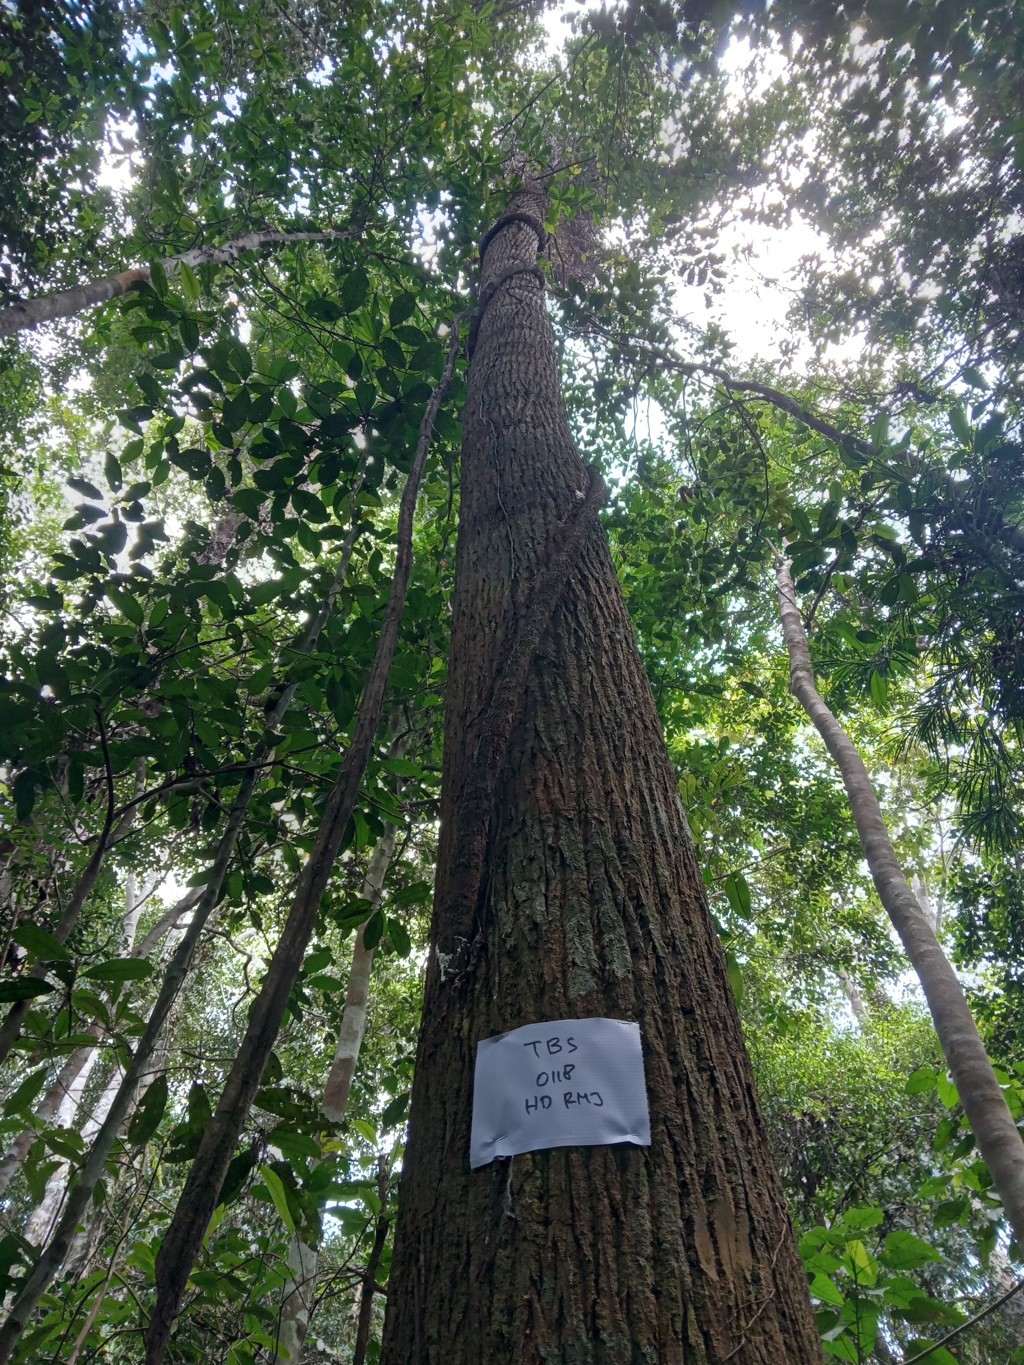 TBS
0118
HD RMJ